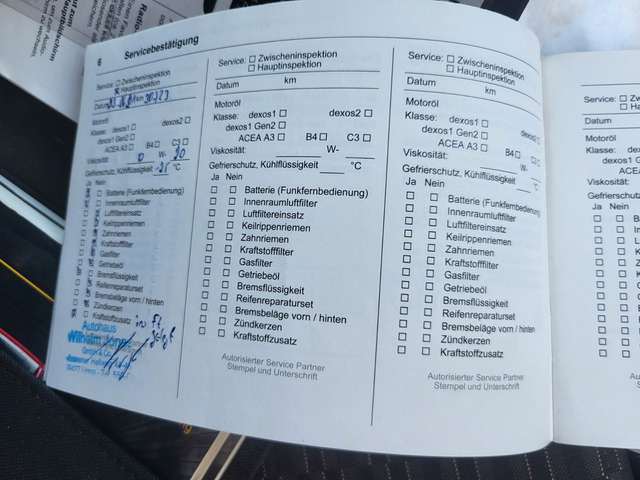 6 Servicebestätigung
Service: Zwischeninspektion
Hauptinspektion
Datum km
Motoröl
Klasse: dexos1 dexos2
dexos1 Gen2
ACEA A3 B4 C3
Viskosität: 0 W- 20
Gefrierschutz, Kühlflüssigkeit °C
Ja Nein
Batterie (Funkfernbedienung)
Innenraumluftfilter
Luftfiltereinsatz
Keilrippenriemen
Zahnriemen
Kraftstofffilter
Gasfilter
Getriebeöl
Bremsflüssigkeit
Reifenreparaturset
Bremsbeläge vorn / hinten
Zündkerzen
Kraftstoffzusatz
Autohaus
Wilhelm
GmbH & Co.
Service: Zwischeninspektion
Hauptinspektion
Datum km
Motoröl
Klasse: dexos1 dexos2
dexos1 Gen2
ACEA A3 B4 C3
Viskosität: W-
Gefrierschutz, Kühlflüssigkeit °C
Ja Nein
Batterie (Funkfernbedienung)
Innenraumluftfilter
Luftfiltereinsatz
Keilrippenriemen
Zahnriemen
Kraftstofffilter
Gasfilter
Getriebeöl
Bremsflüssigkeit
Reifenreparaturset
Bremsbeläge vorn / hinten
Zündkerzen
Kraftstoffzusatz
Autorisierter Service Partner
Stempel und Unterschrift
Service: Zwischeninspektion
Hauptinspektion
Datum km
Motoröl
Klasse: dexos1 dexos2
dexos1 Gen2
ACEA A3 B4 C3
Viskosität: W-
Gefrierschutz, Kühlflüssigkeit °C
Ja Nein
Batterie (Funkfernbedienung)
Innenraumluftfilter
Luftfiltereinsatz
Keilrippenriemen
Zahnriemen
Kraftstofffilter
Gasfilter
Getriebeöl
Bremsflüssigkeit
Reifenreparaturset
Bremsbeläge vorn / hinten
Zündkerzen
Kraftstoffzusatz
Autorisierter Service Partner
Stempel und Unterschrift
Service:
Datum
Motoröl
Klasse:
Viskosität:
Gefrierschutz,
Ja Nein